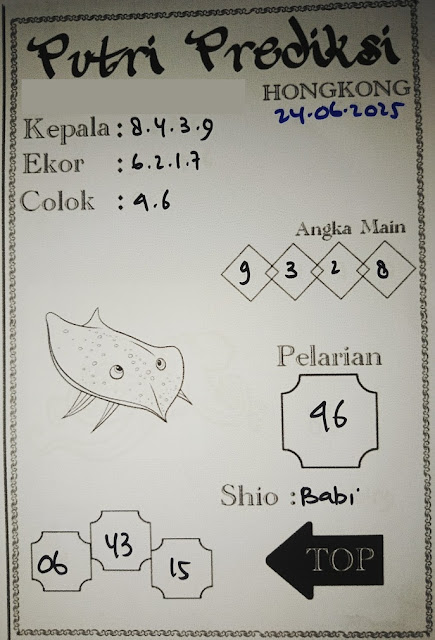 Putri Prediksi
HONGKONG
24.06.2025
Kepala : 8.4.3.9
Ekor : 6.2.1.7
Colok : 9.6
Angka Main
9 3 2 8
Pelarian
96
Shio : Babi
06 43 15
TOP